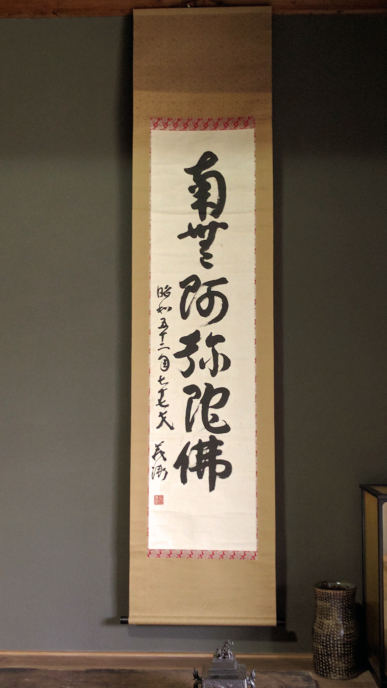 南無阿弥陀佛
昭和五十二
七十七才
義